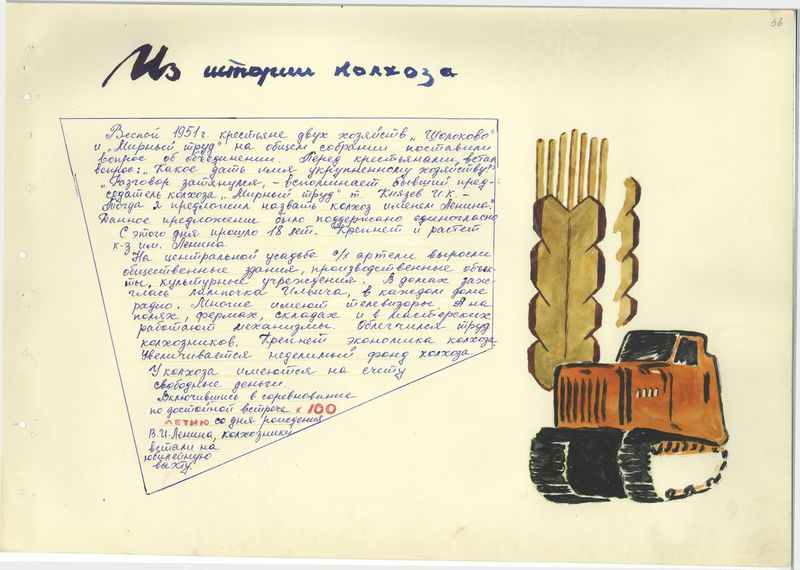 56
Из истории колхоза
Весной 1951 г. крестьяне двух хозяйств „Шолоково"
и „Мирный труд" на общем собрании поставили
вопрос об объединении. Перед крестьянами встал
вопрос: „Какое дать имя укрупненному хозяйству?"
„Разговор затянулся, - вспоминает бывший пред-
седатель колхоза „Мирный труд" т. Князев Ч.К. -
Тогда я предложил назвать колхоз именем Ленина."
Данное предложение было поддержано единогласно
С этого дня прошло 18 лет. Крепнет и растет
к-з им. Ленина.
На центральной усадьбе с/х артели выросли
общественные здания, производственные объек-
ты, культурные учреждения. В домах заж-
глась лампочка Ильича, в каждом доме
радио. Многие имеют телевизоры. А на
полях, фермах, складах и в мастерских
работают механизмы. Облегчился труд
колхозников. Крепнет экономика колхоза
Увеличивается неделимый фонд колхоза.
У колхоза имеются на счету
свободные деньги.
Включившись в соревнование
по достойной встрече к 100
летию со дня рождения
В.И. Ленина, колхозники
встали на
юбилейную
вахту.